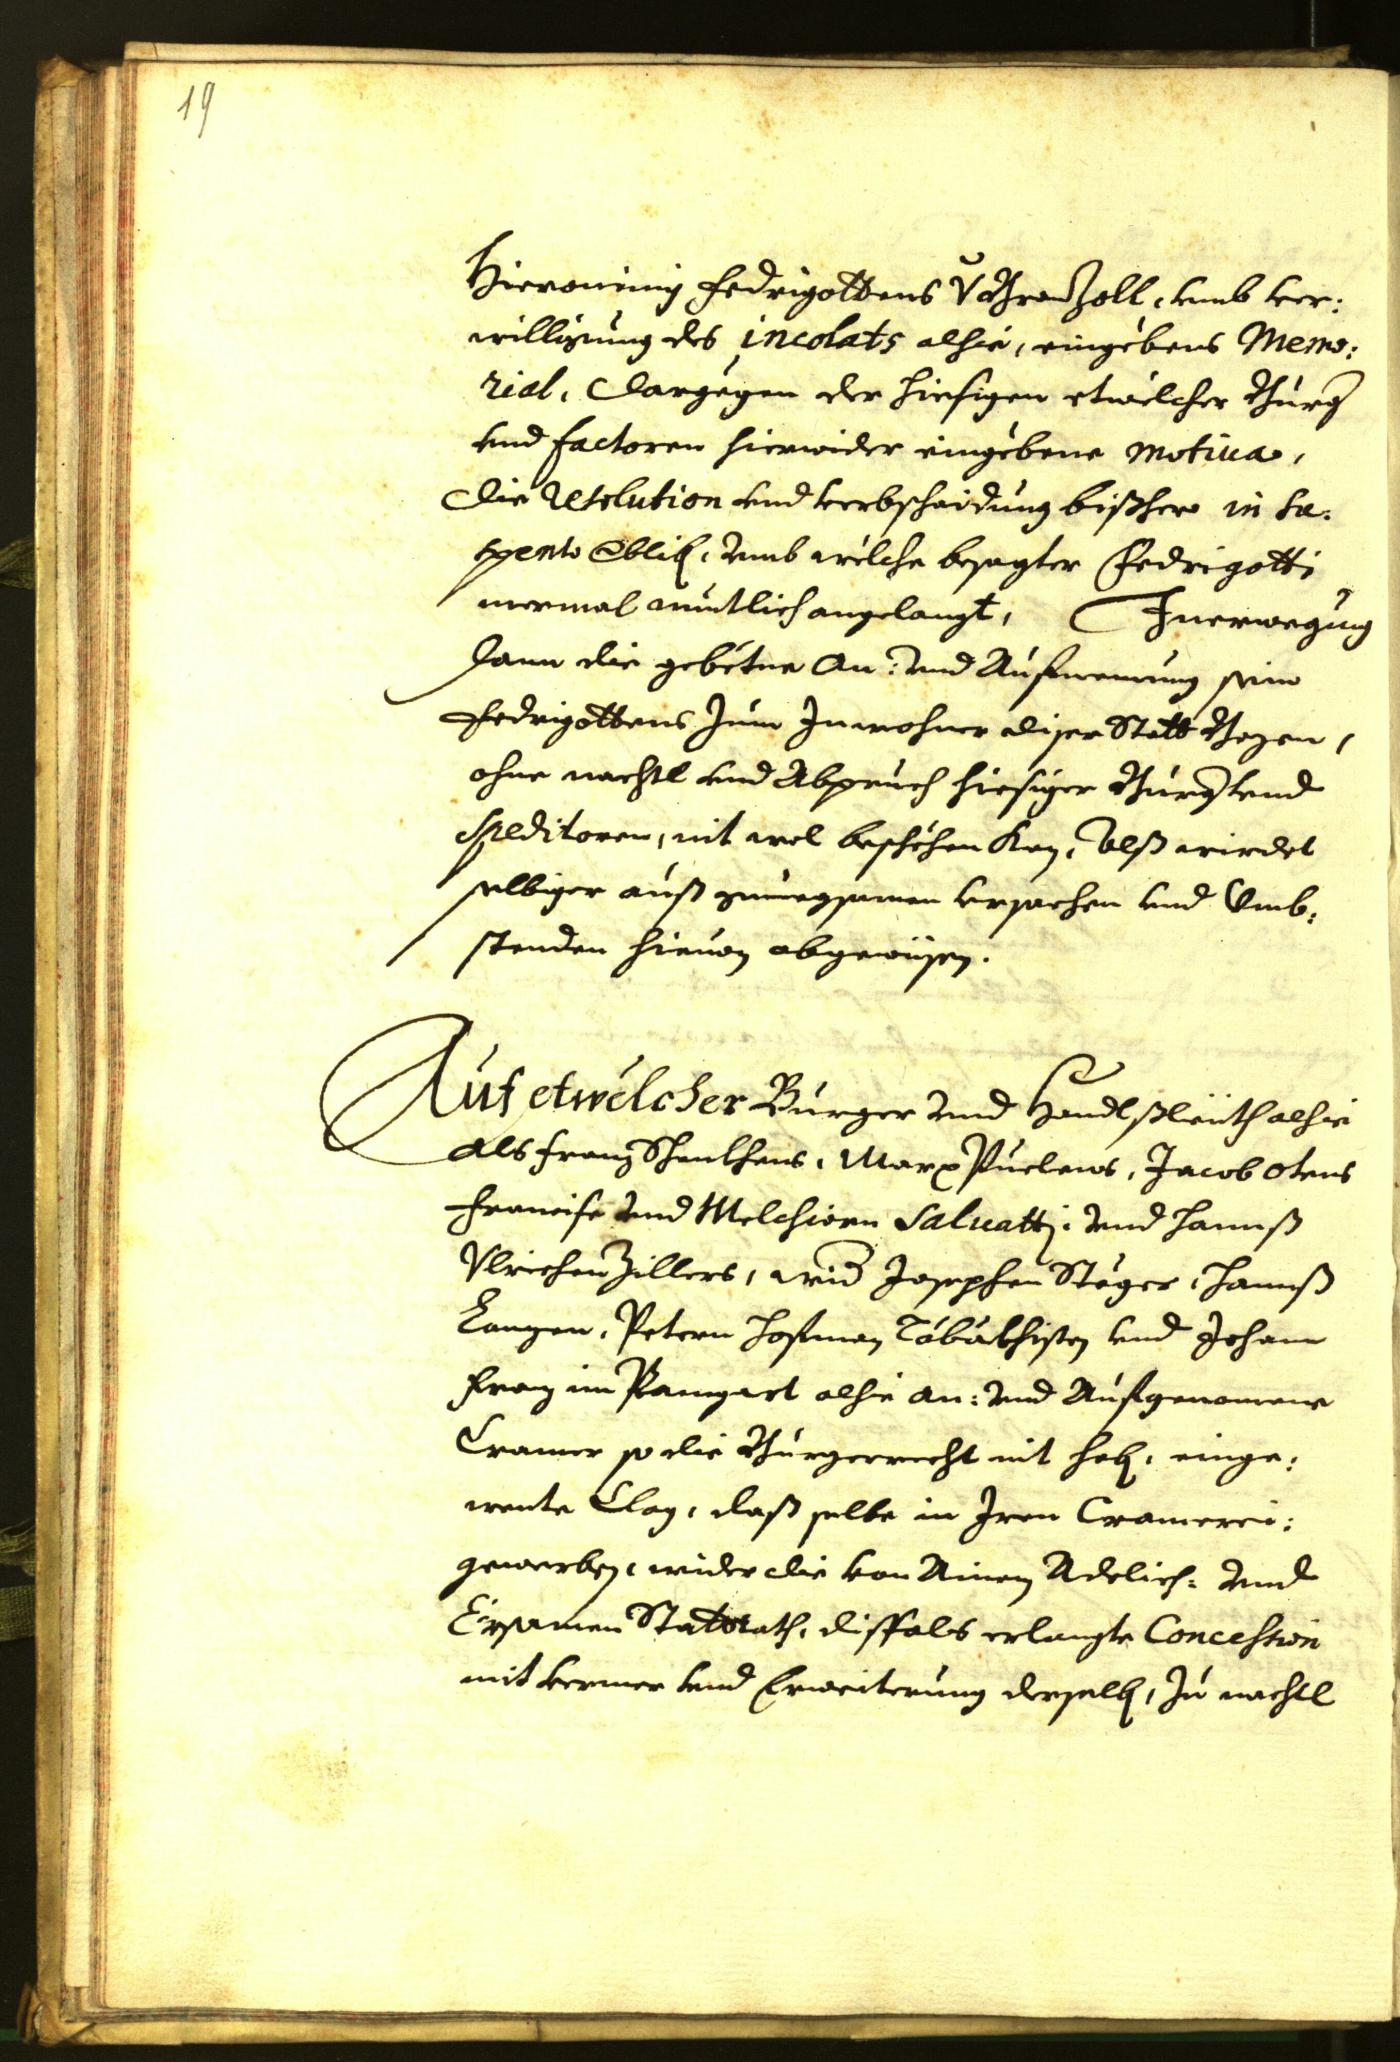 19
Hieronimÿ Fedrigottens Zoll, umb ver:
willigung des incolats alhie, eingebens Memo:
rial, Dargegen der hiesigen etwelcher Burger
und Factoren hierwider eingebene motiva,
die resolution und verbschaidung bißhero in su:
spento verblib, umb welche besagter Fedrigotti
mermal mintlich angelangt, In erwegung
dann die gebetne An: und Aufnemung sein
Fedrigottens zum Inwohner diser Statt Bozen,
ohne nachtl und Abpruch hiesiger Burger und
Speditoren, nit wol beschehen kan, Alß wirdet
selbiger auß genuegsamen ursachen und Umb:
stenden hievon abgewisen.
Auf etwelcher Burger und Handlßleüth alhie
als Franz, Marx, Jacob
und Melchiorn Salvatti, und Hannß
Ulrichen Zillers, wider Josephen Steger, Hannß
Langen, Petern Hofman Tobakhisten und Johann
Franz im Pamgart alhie an: und Aufgenomene
Cramer so die Burgerrecht nit hab, einge:
wente Clag, daß selbe in Iren Cramerei:
gewerben, wider die von Ainem Adelich: und
Ersamen Stattrath, dissfals erlangte Concession
mit vermer und Erweiterung derselb, zu nachtl